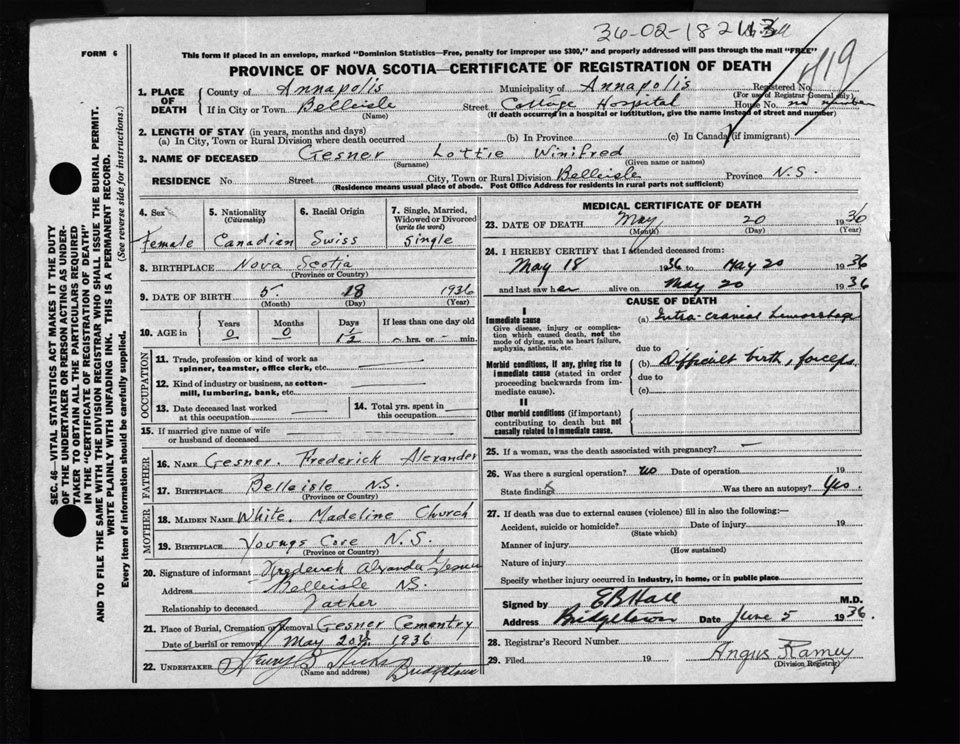 36-02-18 2
419
FORM 6
This form if placed in an envelope, marked "Dominion Statistics—Free, penalty for improper use $300," and properly addressed will pass through the mail "FREE"
PROVINCE OF NOVA SCOTIA—CERTIFICATE OF REGISTRATION OF DEATH
SEC. 46—VITAL STATISTICS ACT MAKES IT THE DUTY
OF THE UNDERTAKER OR PERSON ACTING AS UNDER-
TAKER TO OBTAIN ALL THE PARTICULARS REQUIRED
IN THE "CERTIFICATE OF REGISTRATION OF DEATH"
AND TO FILE THE SAME WITH THE DIVISION REGISTRAR WHO SHALL ISSUE THE BURIAL PERMIT.
WRITE PLAINLY WITH UNFADING INK. THIS IS A PERMANENT RECORD.
Every item of information should be carefully supplied. (See reverse side for instructions.)
1. PLACE OF DEATH County of Annapolis Municipality of Annapolis Registered No.
(For use of Registrar General only)
If in City or Town Belleisle Street Cottage Hospital House No. no number
(Name) (If death occurred in a hospital or institution, give the name instead of street and number)
2. LENGTH OF STAY (in years, months and days)
(a) In City, Town or Rural Division where death occurred (b) In Province (c) In Canada (if immigrant)
3. NAME OF DECEASED Gesner Lottie Winifred
(Surname) (Given name or names)
RESIDENCE No. Street City, Town or Rural Division Belleisle Province N.S.
(Residence means usual place of abode. Post Office Address for residents in rural parts not sufficient)
4. Sex Female
5. Nationality (Citizenship) Canadian
6. Racial Origin Swiss
7. Single, Married, Widowed or Divorced (write the word) Single
8. BIRTHPLACE Nova Scotia
(Province or Country)
9. DATE OF BIRTH 5 18 1936
(Month) (Day) (Year)
10. AGE in Years 0 Months 0 Days 1½ If less than one day old hrs. or min.
OCCUPATION
11. Trade, profession or kind of work as spinner, teamster, office clerk, etc.
12. Kind of industry or business, as cotton-mill, lumbering, bank, etc.
13. Date deceased last worked at this occupation
14. Total yrs. spent in this occupation
15. If married give name of wife or husband of deceased
FATHER
16. NAME Gesner. Frederick Alexander
17. BIRTHPLACE Belleisle N.S.
(Province or Country)
MOTHER
18. MAIDEN NAME White. Madeline Church
19. BIRTHPLACE Youngs Cove N.S.
(Province or Country)
20. Signature of informant Frederick Alexander Gesner
Address Belleisle N.S.
Relationship to deceased Father
21. Place of Burial, Cremation or Removal Gesner Cementry
Date of burial or removal May 20th 1936
22. UNDERTAKER Hicks Bridgetown
(Name and address)
MEDICAL CERTIFICATE OF DEATH
23. DATE OF DEATH May 20 1936
(Month) (Day) (Year)
24. I HEREBY CERTIFY that I attended deceased from:
May 18 1936 to May 20 1936
and last saw her alive on May 20 1936
CAUSE OF DEATH
I
Immediate cause (a) Intra-cranial hemorrhage
Give disease, injury or complication which caused death, not the mode of dying, such as heart failure, asphyxia, asthenia, etc.
due to
Morbid conditions, if any, giving rise to immediate cause (stated in order proceeding backwards from immediate cause). (b) Difficult birth, forceps.
due to
(c)
II
Other morbid conditions (if important) contributing to death but not causally related to immediate cause.
25. If a woman, was the death associated with pregnancy? —
26. Was there a surgical operation? No Date of operation 19
State findings Was there an autopsy? Yes.
27. If death was due to external causes (violence) fill in also the following:—
Accident, suicide or homicide? Date of injury 19
(State which)
Manner of injury
(How sustained)
Nature of injury
Specify whether injury occurred in industry, in home, or in public place
Signed by E B Hall M.D.
Address Bridgetown Date June 5 1936.
28. Registrar's Record Number
29. Filed 19 Angus Ramey
(Division Registrar)